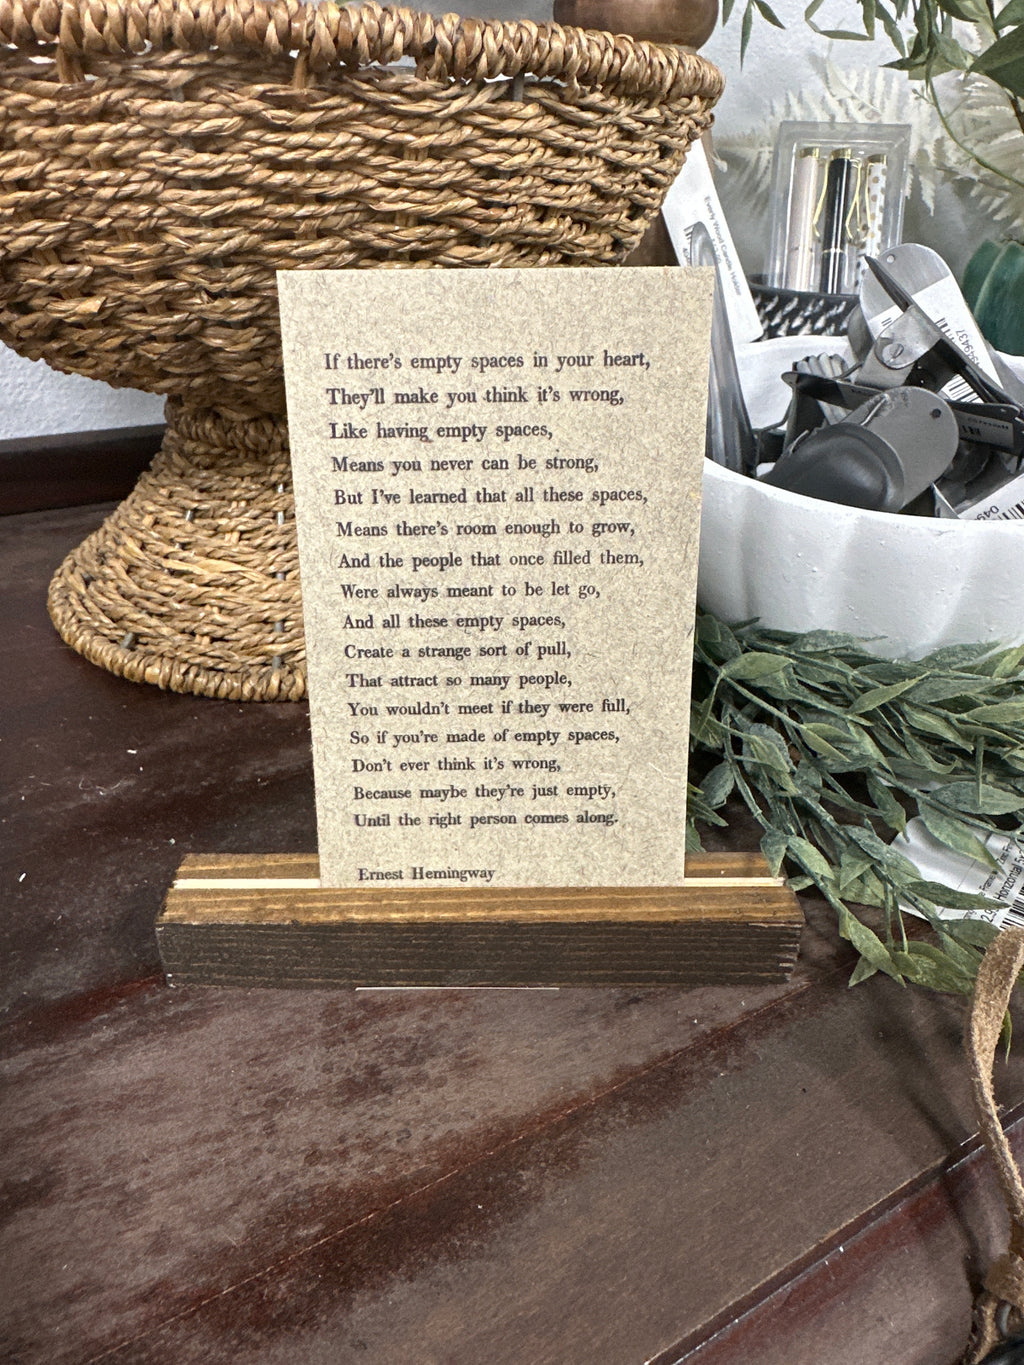 If there's empty spaces in your heart,
They'll make you think it's wrong,
Like having empty spaces,
Means you never can be strong,
But I've learned that all these spaces,
Means there's room enough to grow,
And the people that once filled them,
Were always meant to be let go,
And all these empty spaces,
Create a strange sort of pull,
That attract so many people,
You wouldn't meet if they were full,
So if you're made of empty spaces,
Don't ever think it's wrong,
Because maybe they're just empty,
Until the right person comes along.
Ernest Hemingway
Candle Holder
Horizontal